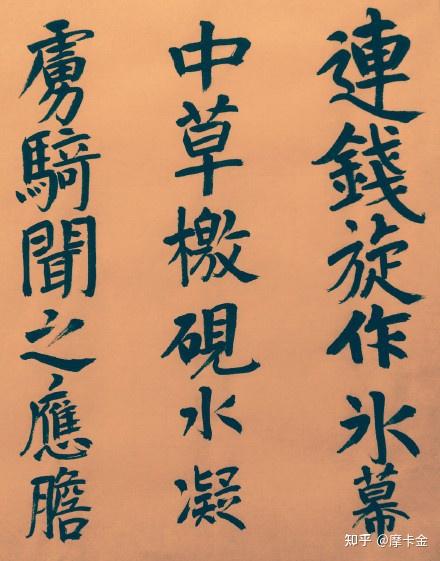 連錢旋作氷幕
中草檄硯水凝
虜騎聞之應膽
知乎 @摩卡金